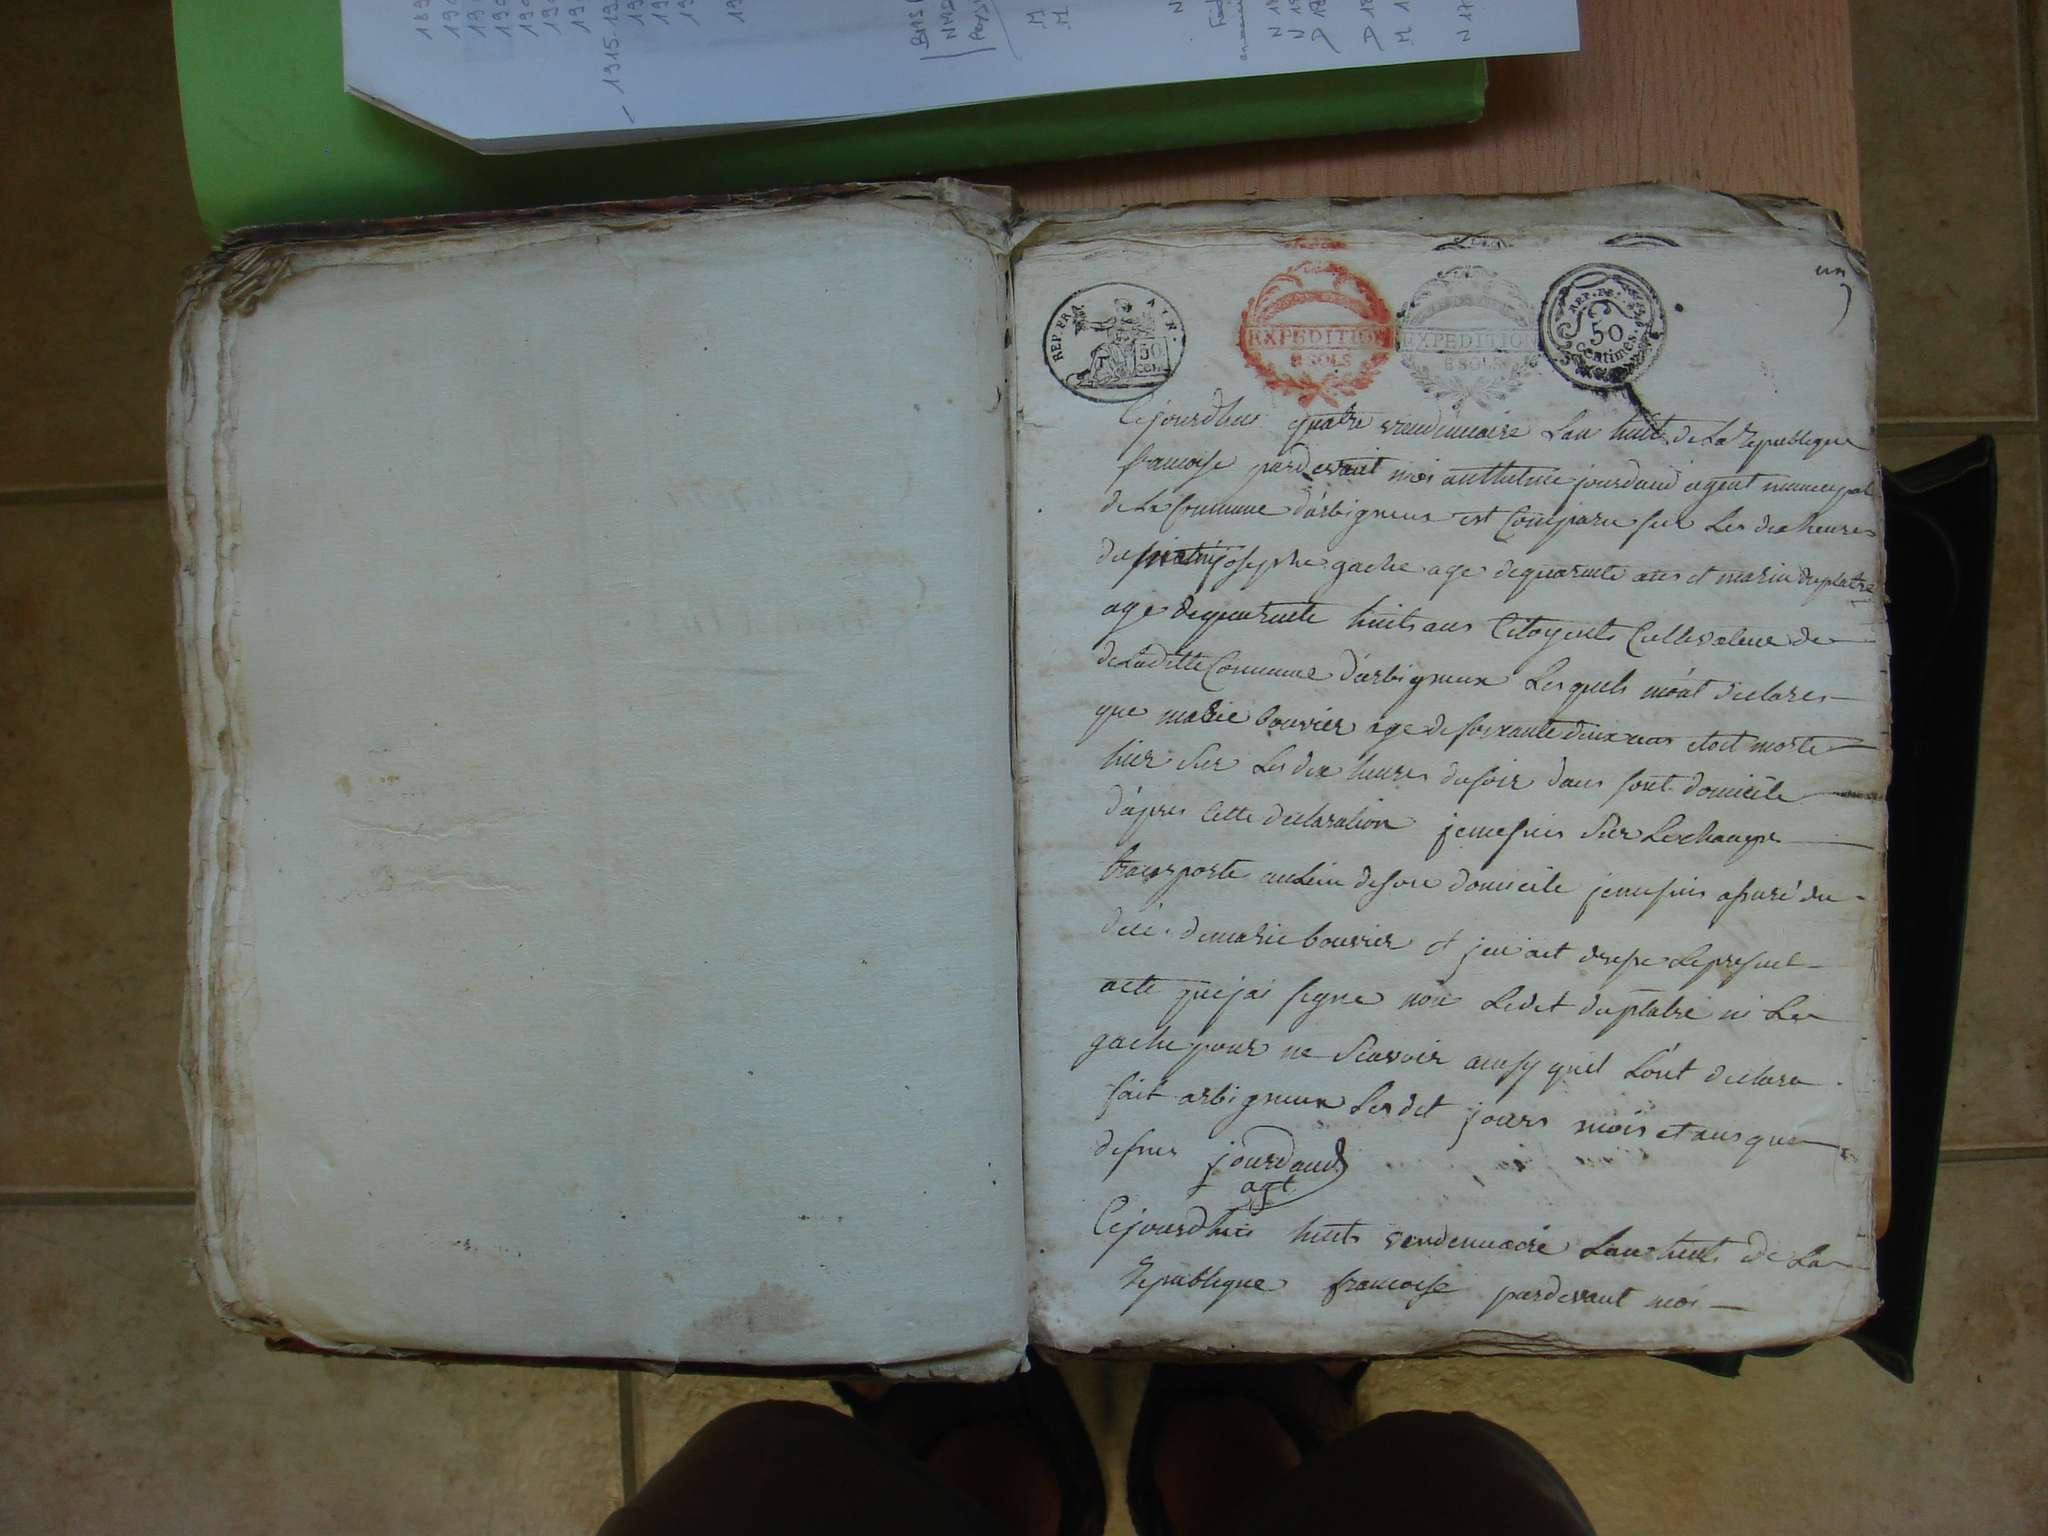 189
- 1915.19
un
REP. FRA. AIN.
50
cen.
EXPEDITION
6 SOLS
EXPEDITION
6 SOLS
REP. FR.
50
Centimes.
Cejourdhui quatre vendemiaire Lan huit de La Republique
francoise pardevant moi anthelme jourdand agent municipal
de La Commune d'arbigneux est Comparu sur Les dix heures
du matin josephe gache age de quarante ans et marin duplatre
age de quarante huits ans Citoyents Cultivateur de
de Laditte Commune d'arbigneux Lesquels m'ont declares
que marie bouvier age de soixante deux ans etoit morte
hier sur Les dix heures du soir dans sont domicile
d'apres Cette declaration je me suis sur Le champs
transporte au Lieu de son domicile je me suis assuré du
décé de marie bouvier et j'en ait dresse Le present
acte que jai signe non Ledit duplatre ni Le
gache pour ne scavoir ainsy quil L'ont declare
fait arbigneux Les dit jours mois et ans que
dessus jourdand
agt
Cejourdhui huits vendemiaire Lan huits de La
Republique francoise pardevant moi